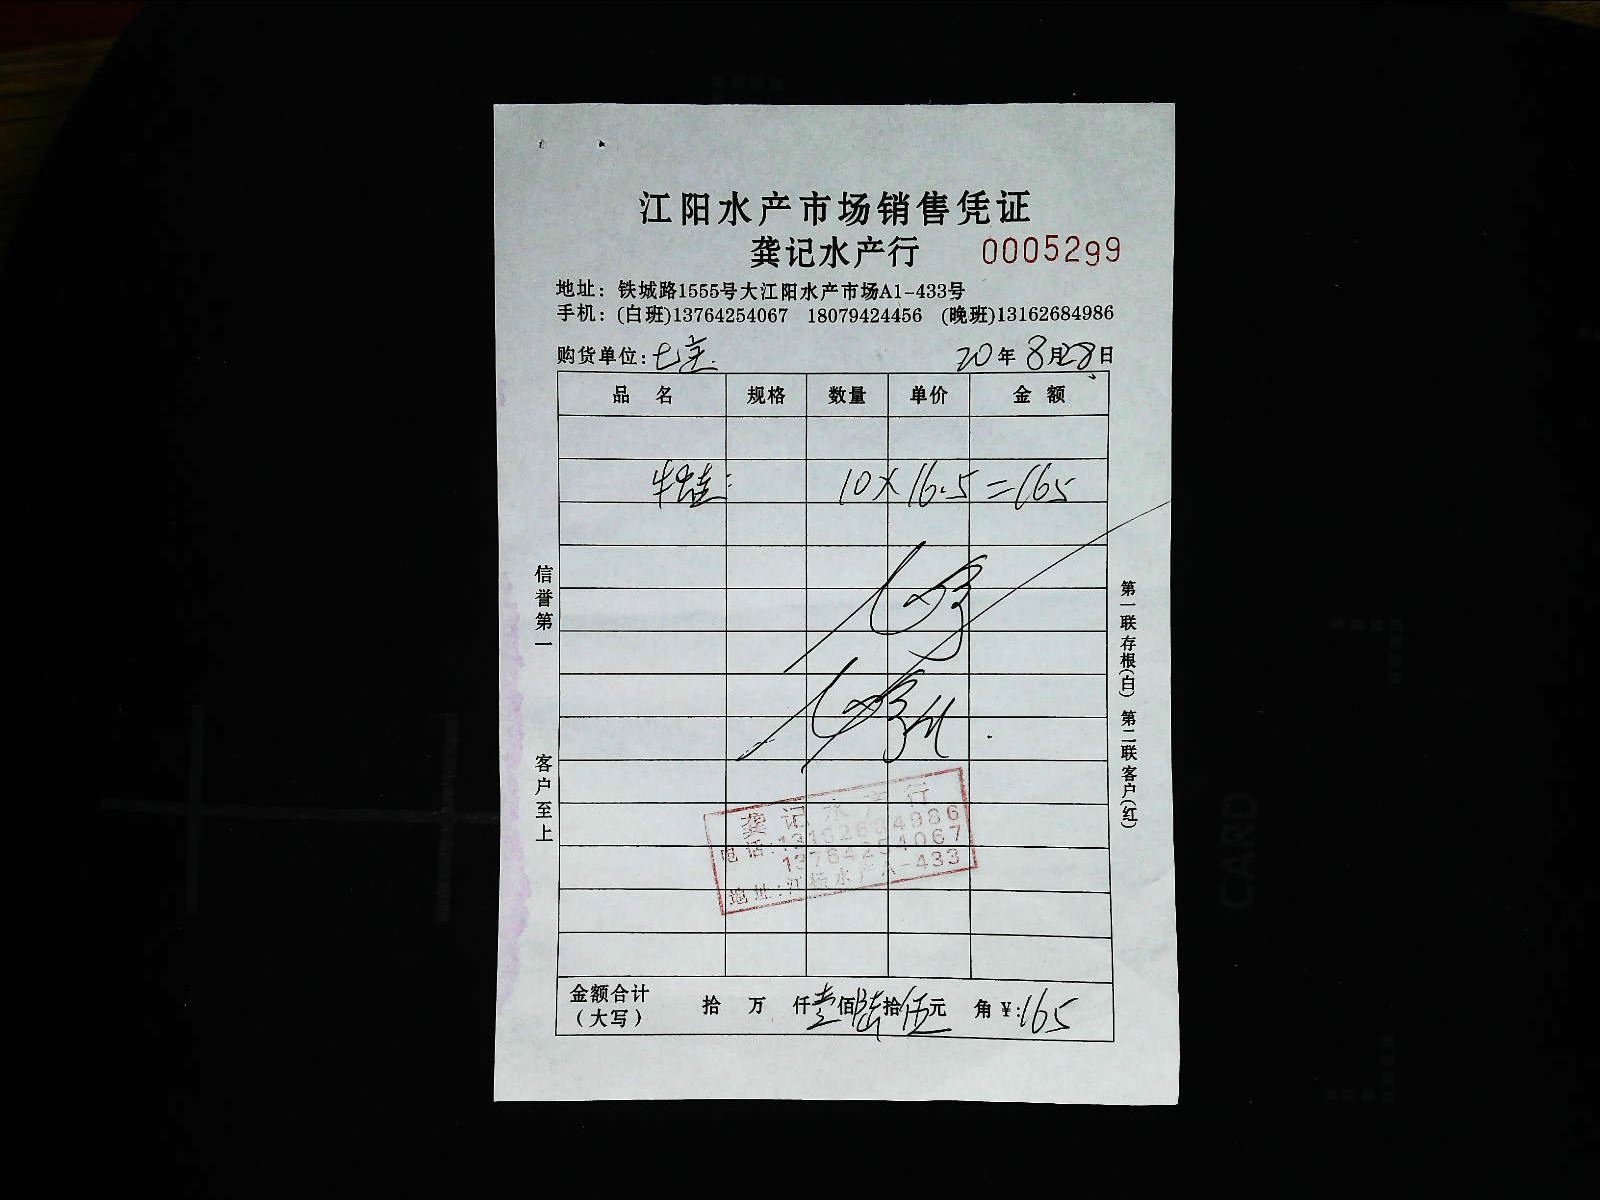 江阳水产市场销售凭证
龚记水产行 0005299
地址：铁城路1555号大江阳水产市场A1-433号
手机：(白班)13764254067 18079424456 (晚班)13162684986
购货单位：七宝 20年8月28日
品名 规格 数量 单价 金额
牛蛙： 10×16.5=165
信誉第一
客户至上
第一联存根(白) 第二联客户(红)
龚记水产行
电话：13162684986
13764254067
地址：江杨水产A-433
金额合计（大写） 拾 万 仟壹佰陆拾伍元 角 ¥：165